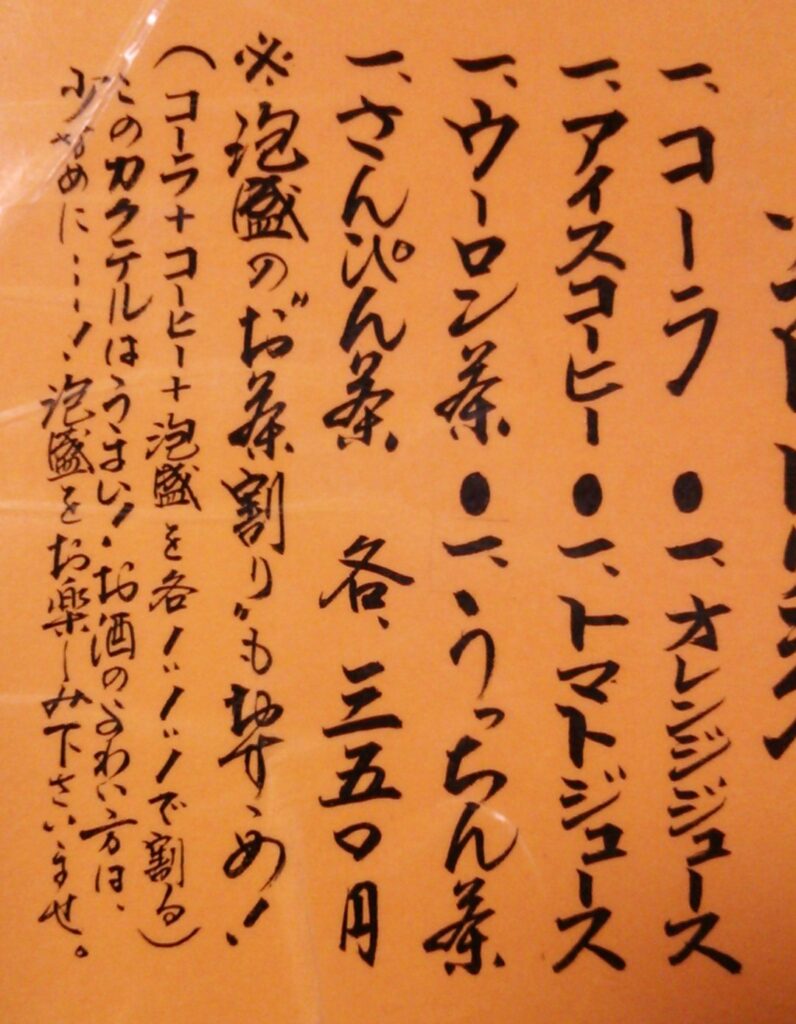 一、コーラ ● 一、オレンジジュース
一、アイスコーヒー ● 一、トマトジュース
一、ウーロン茶 ● 一、うっちん茶
一、さんぴん茶 各、三五〇円
※泡盛の〝お茶割り〟もおすすめ!
(コーラ+コーヒー+泡盛を各1:1:1で割る)
このカクテルはうまい!お酒のよわい方は、
少なめに…!泡盛をお楽しみ下さいませ。